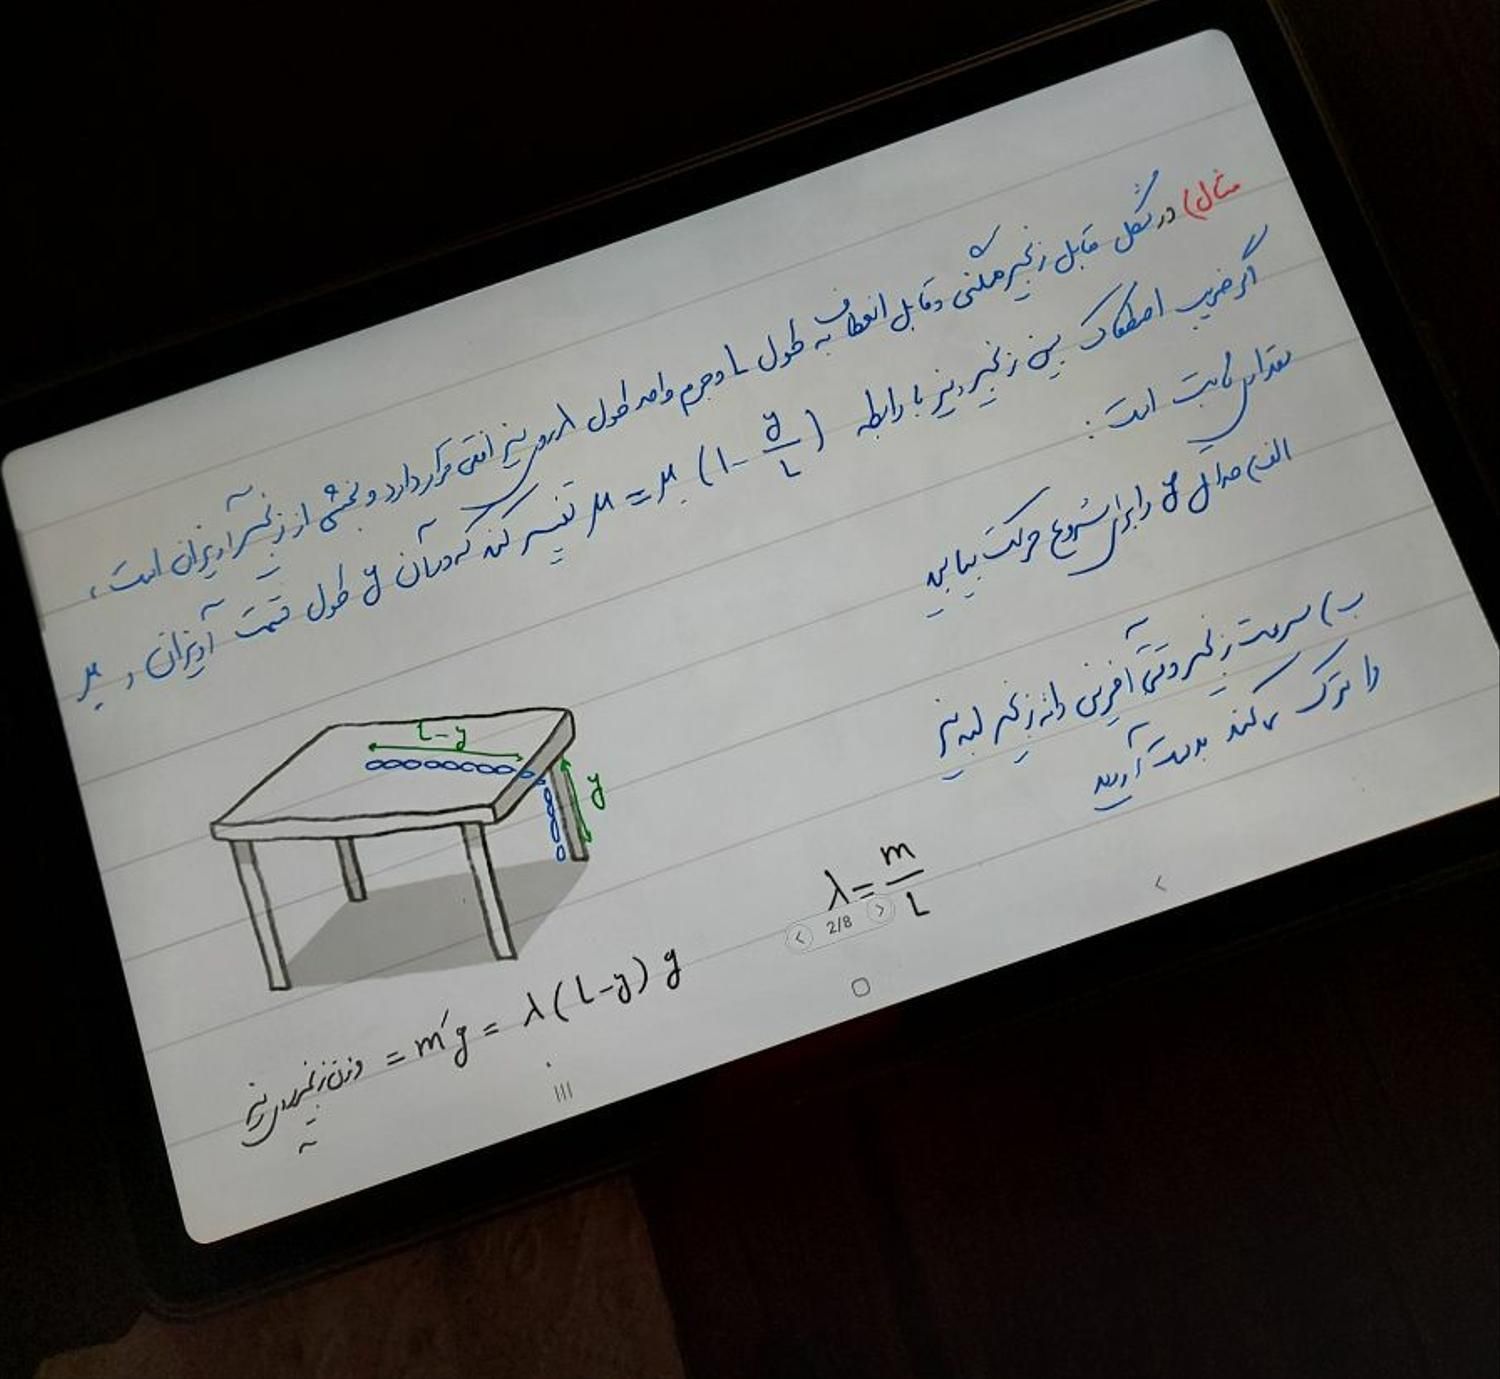 مثال) در شکل مقابل زنجیر همگنی و قابل انعطاف به طول L و جرم واحد طول λ روی میز افقی قرار دارد و بخشی از زنجیر آویزان است،
اگر ضریب اصطکاک بین زنجیر و میز با رابطه μ = μ₀ (1 - y/L) تغییر کند که در آن y طول قسمت آویزان و μ₀
مقداری ثابت است :
الف) حداقل y را برای شروع حرکت بیابید
ب) سرعت زنجیر وقتی آخرین دانه زنجیر لبه میز
را ترک می‌کند بدست آورید
L-y
y
λ = m/L
2/8
وزن زنجیر روی میز = m'g = λ(L-y)g